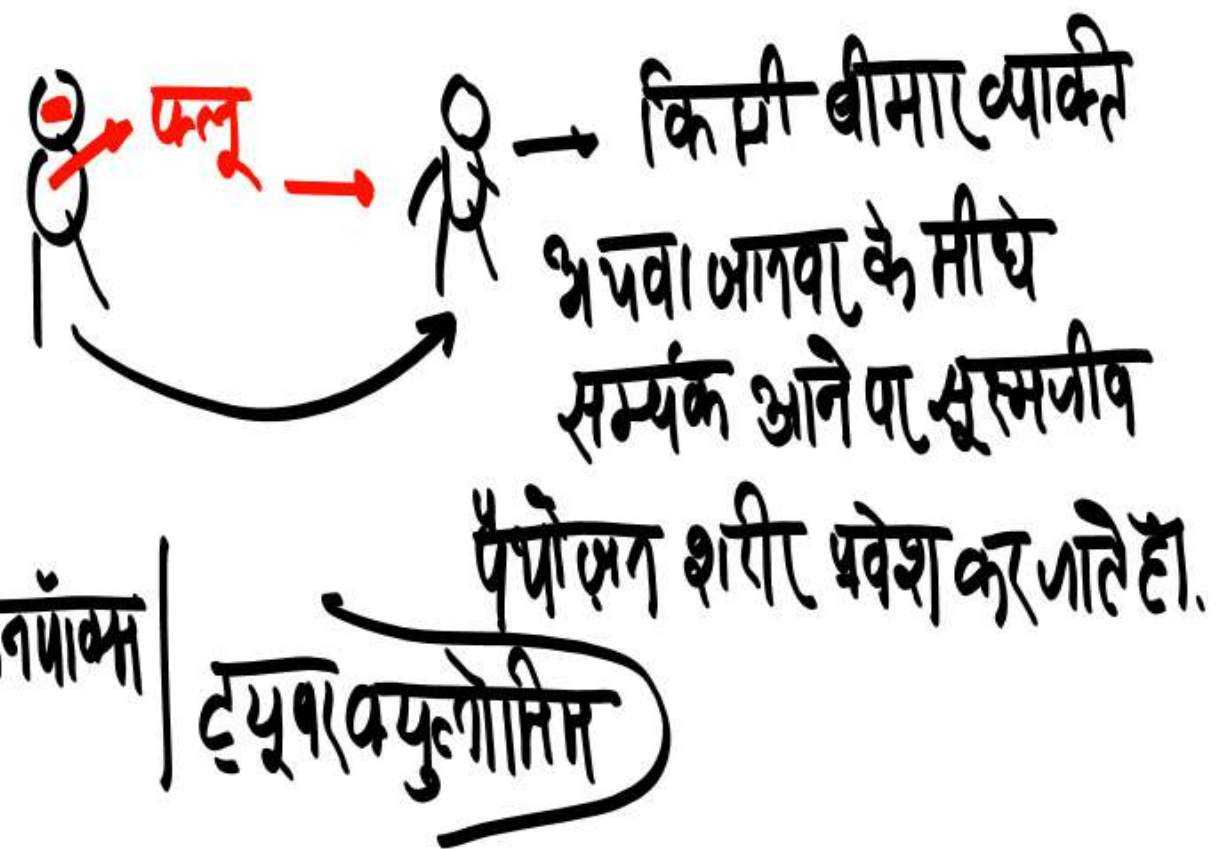 फ्लू
किसी बीमार व्यक्ति
अथवा जानवर के सीधे
सम्पर्क आने पर सूक्ष्मजीव
पैथोजन शरीर प्रवेश कर जाते हैं.
ट्यूबरक्युलोसिस